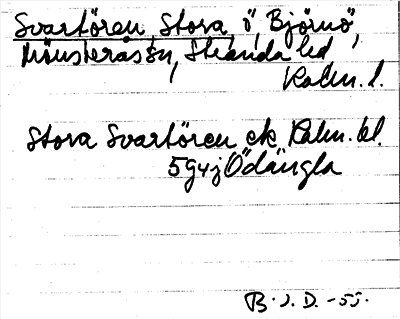 Svartören, Stora, ö, Björnö,
Mönsterås sn, Stranda hd
Kalm. l.
Stora Svartören ek. Kalm. bl.
5g4j Ödängla
B. J. D. -55.